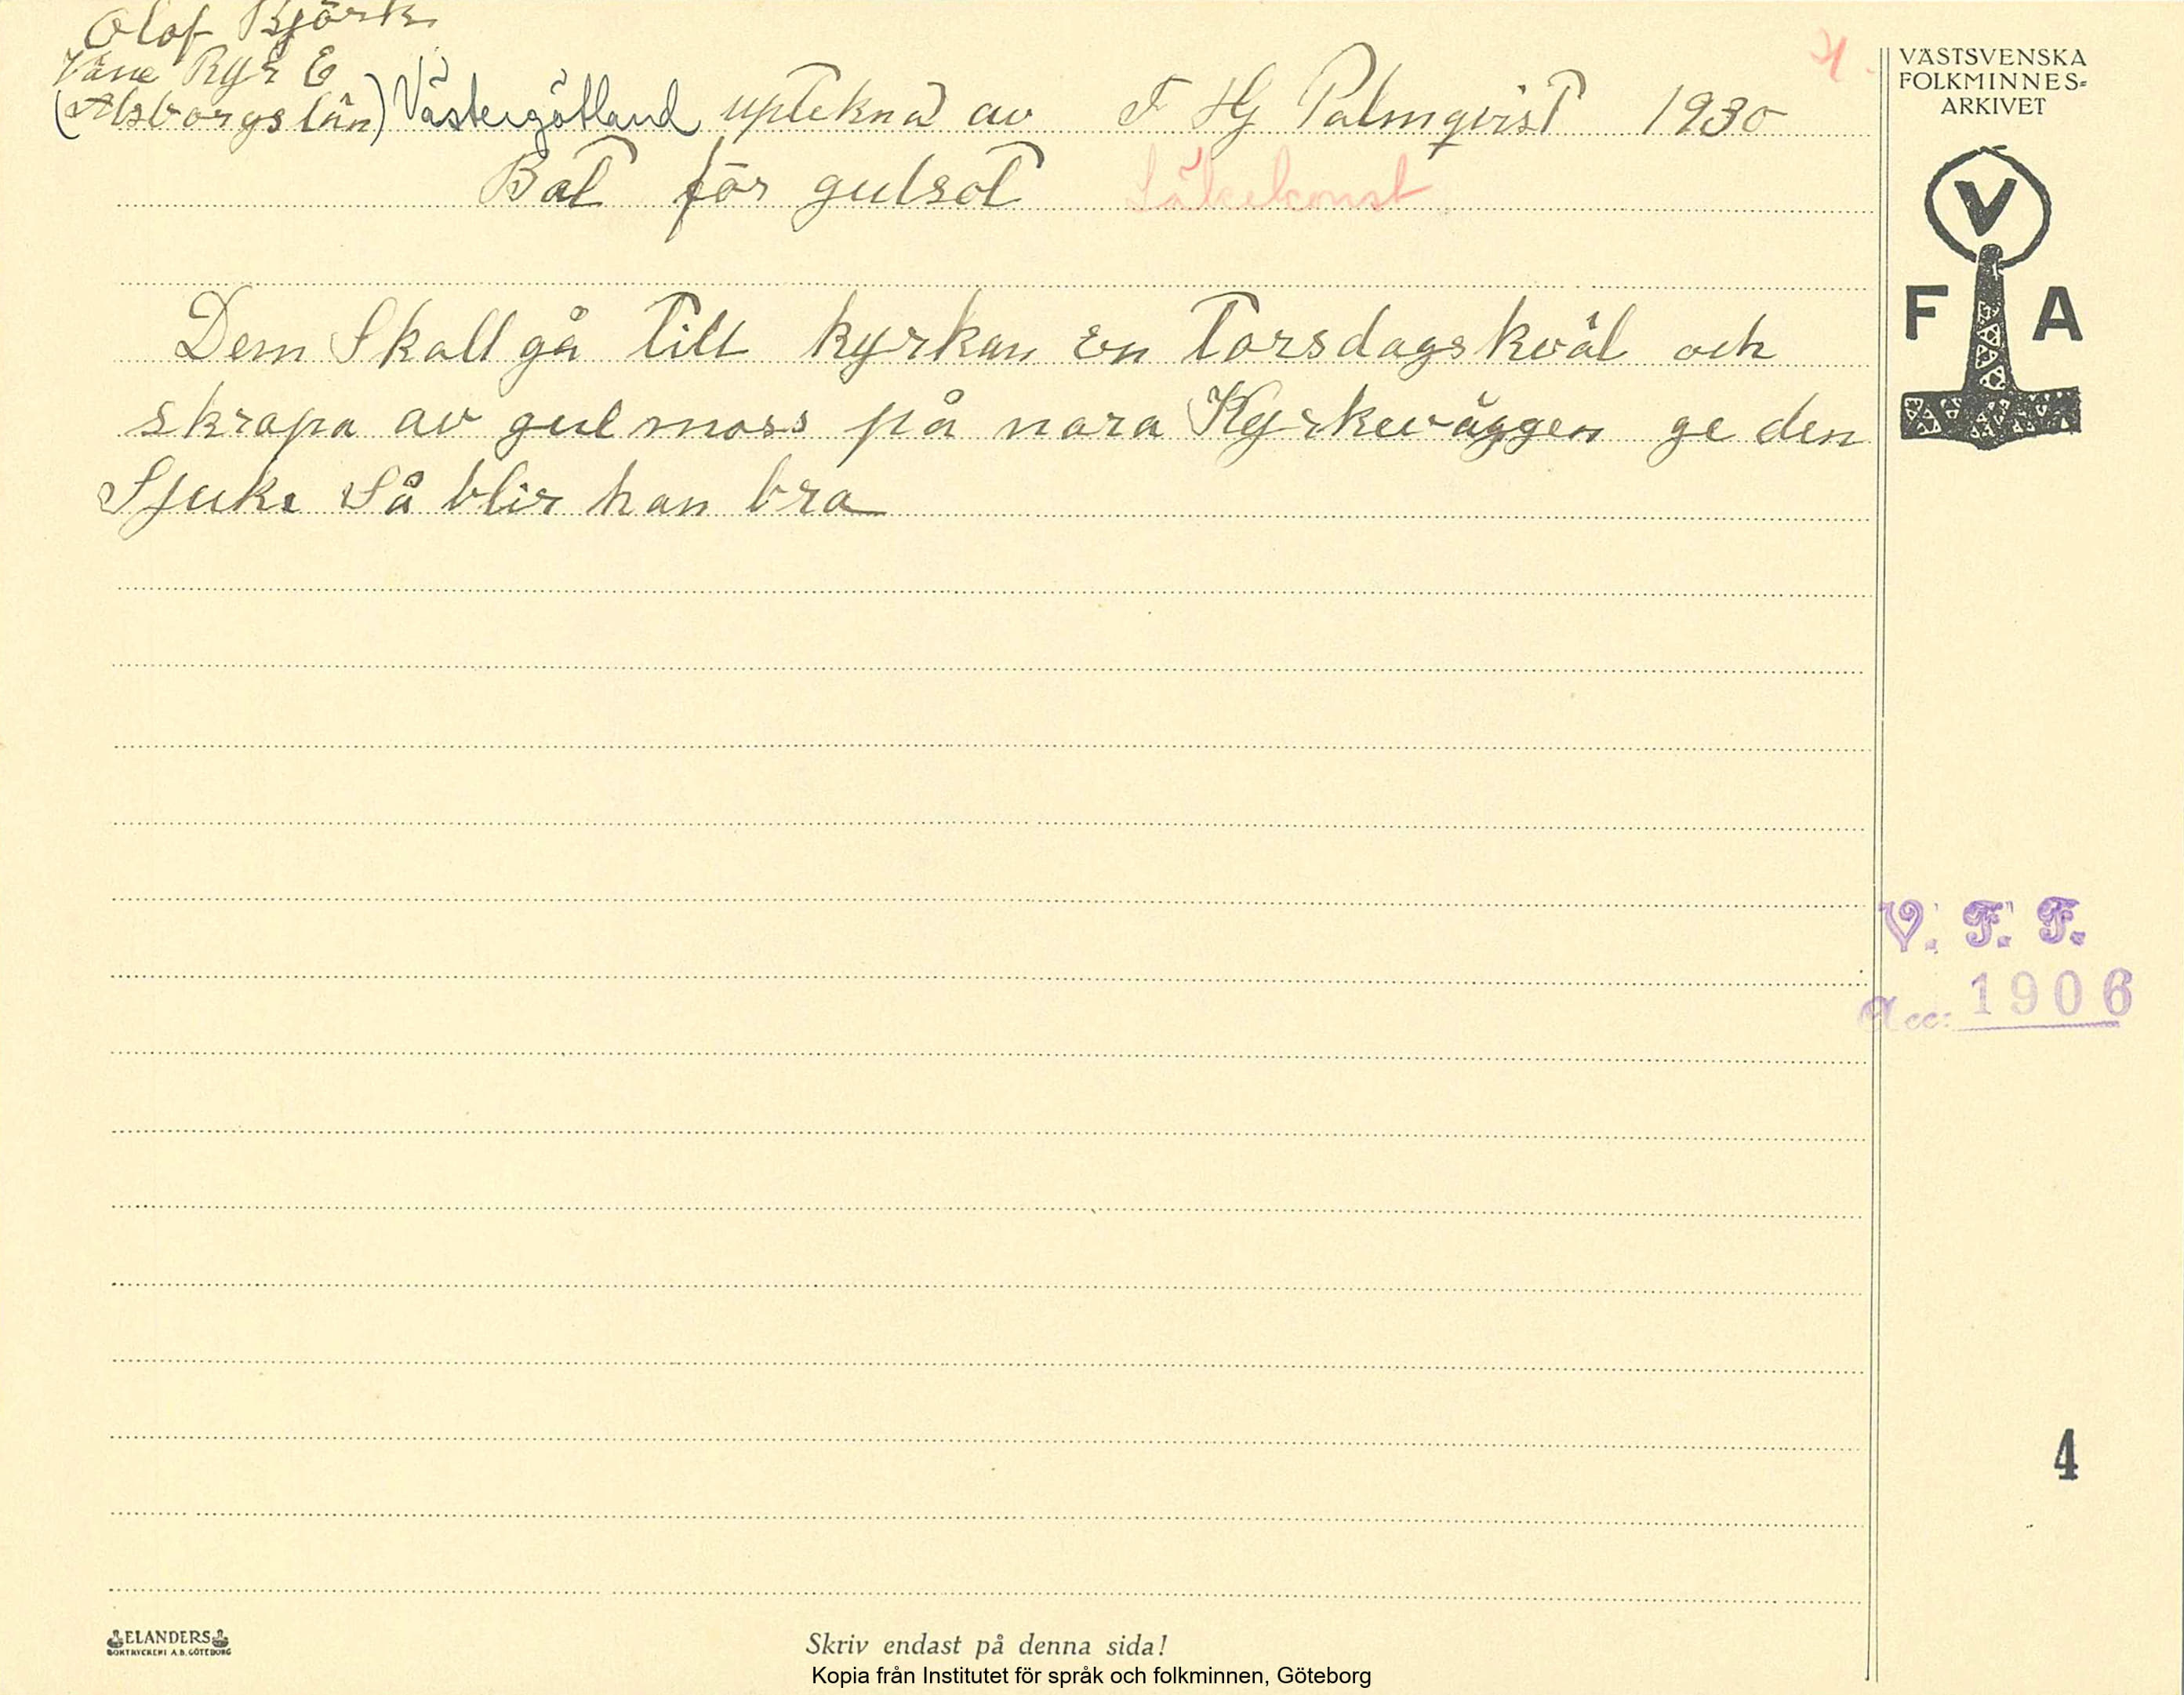 Olof Björk
Väne Ryr E
(Älsborgs län) Västergötland uptekna av F Hj Palmqvist 1930
Bot för gulsot Läkekonst
Dem Skall gå till kyrkan en torsdagskväl och
skrapa av gul moss på nora Kyrkeväggen ge den
Sjuke Så blir han bra
VÄSTSVENSKA
FOLKMINNES-
ARKIVET
V
F A
V. F. F.
Acc: 1906
4
ELANDERS
BOKTRYCKERI A.B. GÖTEBORG
Skriv endast på denna sida!
Kopia från Institutet för språk och folkminnen, Göteborg